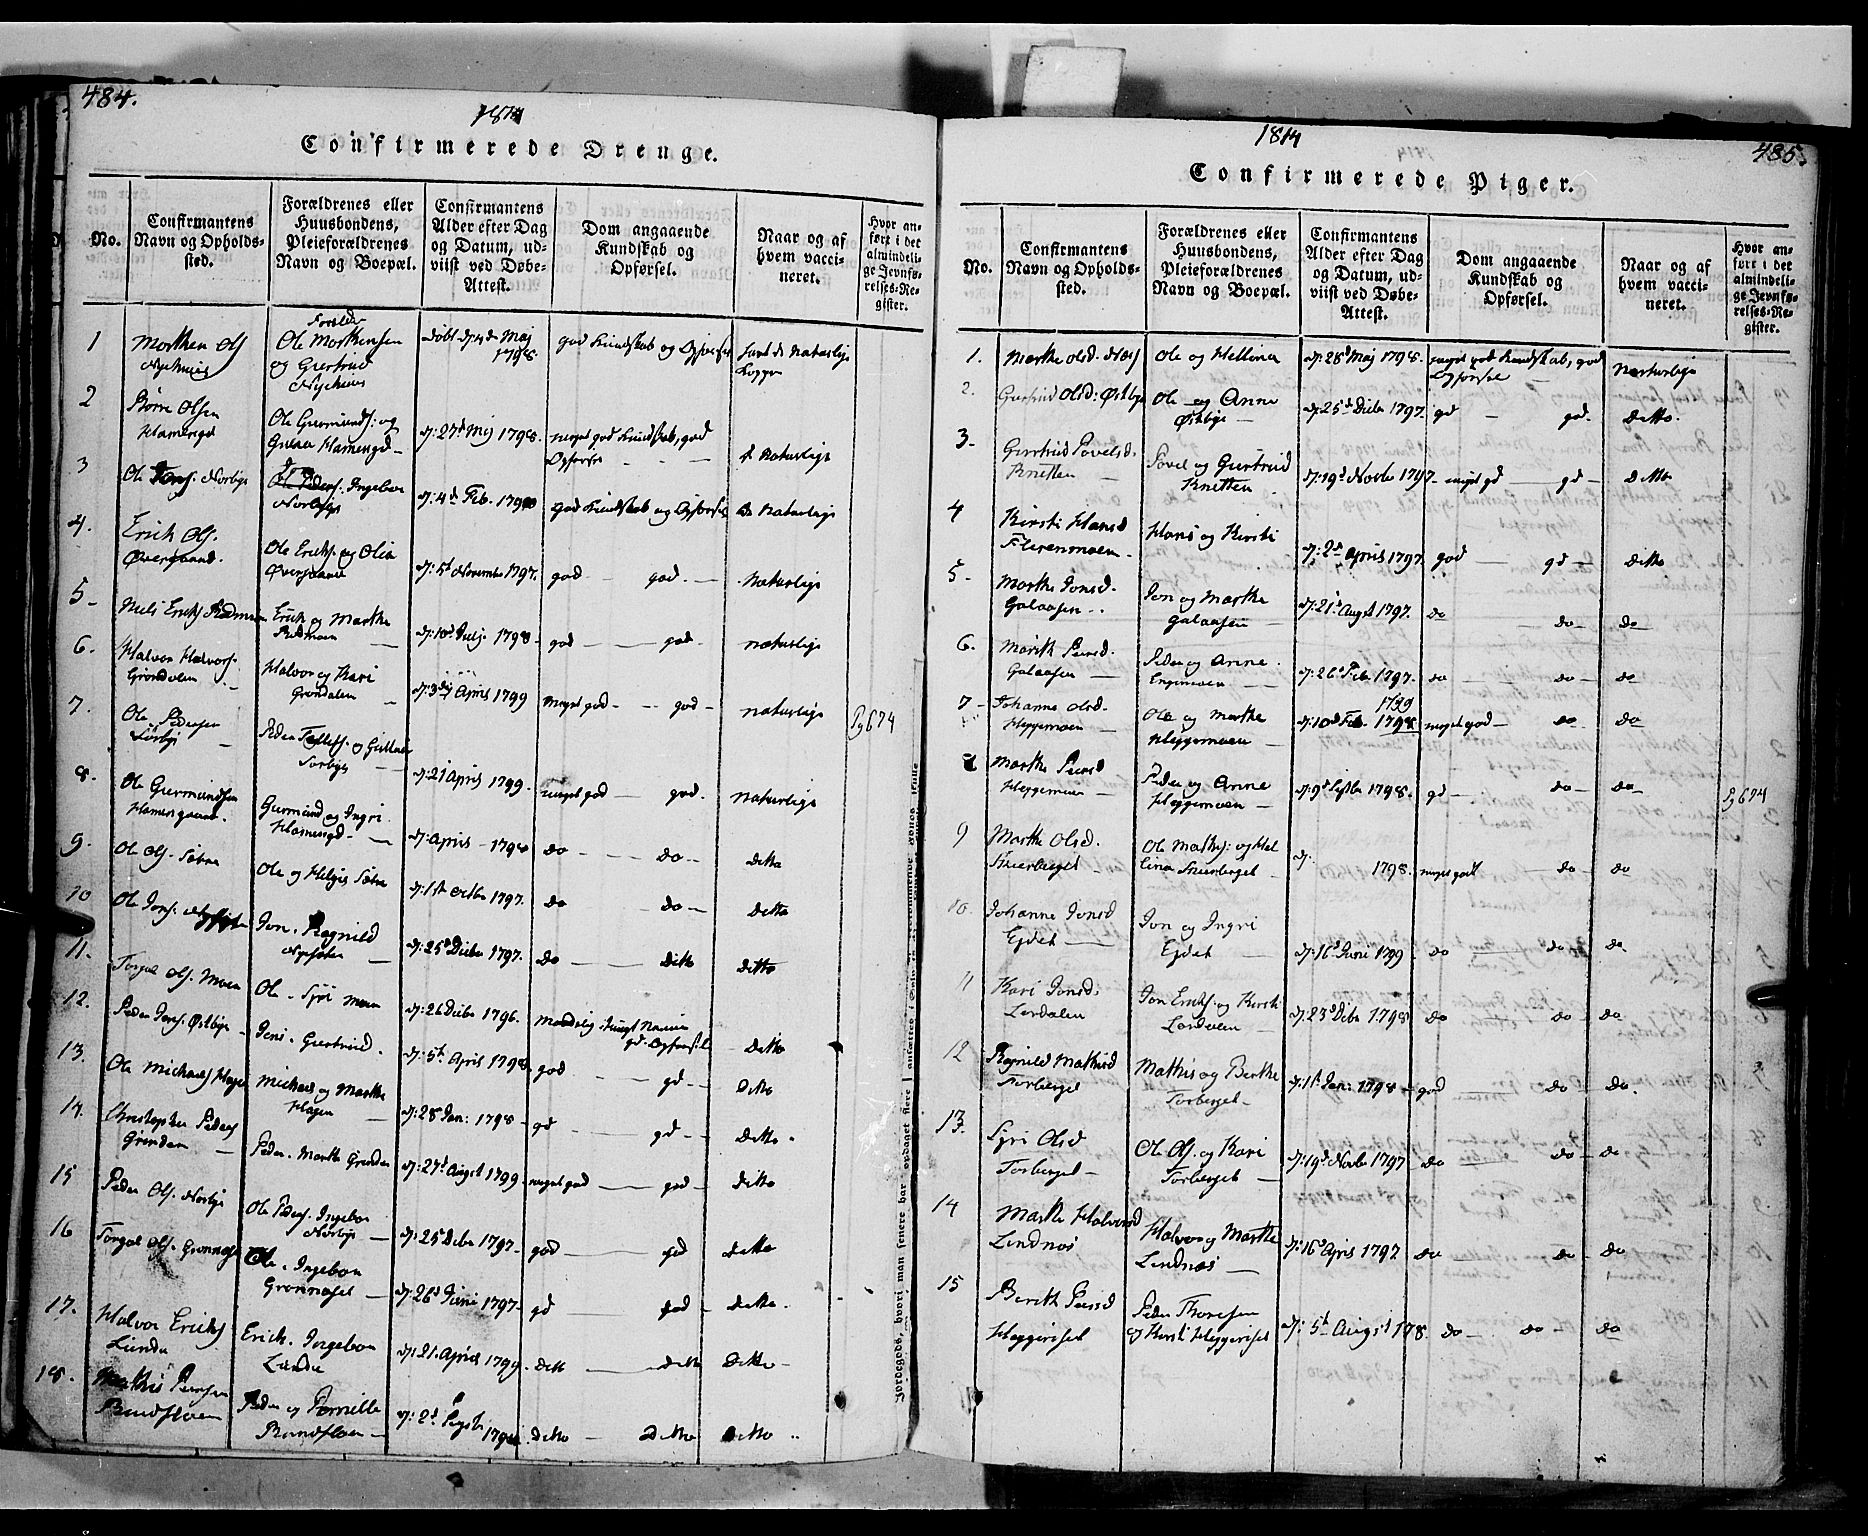 484.
1814
Confirmerede Drenge.
No.
Confirmantens
Navn og Opholds-
sted.
Forældrenes eller
Huusbondens,
Pleieforældrenes
Navn og Boepæl.
Confirmantens
Alder efter Dag
og Datum, ud-
viist ved Døbe-
Attest.
Dom angaaende
Kundskab og
Opførsel.
Naar og af
hvem vacci-
neret.
Hvor an-
ført i det
almindeli-
ge Jevnfø-
relses-Re-
gister.
1 Morthen Ols Nyehuus
Forældr
Ole Morthensen og Giertrud Nyehuus
døbt d: 4de Maj 1798
god Kundskab og Opførsel
havt de naturlige Kopper
2 Børre Olsen Hamengd
Ole Gurmunds: og Hamengd
d: 27d Maj 1798.
meget god Kundskab, god Opførsel
d. naturlige
3 Ole Norbye
Ole Peders. Ingebor Norbye
d: 4d Feb. 1798
god Kundskab og Opførsel
de naturlige
4. Erich Ols. Øvergaard
Ole Erichs. og Olia Øvergaard
d: 5t November 1797.
god — god —
naturlige
5 - Niels Erichs Rødmoen
Erich og Marthe Rødmoen
d: 10d Julj 1798 -
god — god -
naturlige
6. Halvor Halvors. Grøndalen
Halvor og Kari Grøndalen
d: 3dj April 1799
meget god — god -
naturlige
7. Ole Pedersen
Peder og
d: 21 April 1799.
meget god — god.
naturlige
Pg 674
8. Ole Gurmundsen Hamengaard.
Gurmund og Ingri Hamengd -
d: April - 1798
do — do -
detto
9. Ole Ols. Sætre
Ole og Helgie Sætre
d: 1st Octbr 1797.
do — do -
detto
10 Ole Jons.
Jon. Ragnild
d: 25d Decbr 1797.
do — ditto
ditto
11. Torgal Ols. Moen
Ole - Siri Moen
d: 26 Decbr 1796.
gd. Opførsel
ditto
12. Peder Jens. Østbye
Jens. Giertrud.
d: 5t April 1798
god — gd -
ditto
13. Ole Michaels Hagen
Michael og Marthe Hagen
d: 28 Jan: 1798 -
gd — gd -
ditto.
14. Christopher Peders Grinden
Peder. Marthe Grinden
d: 27d Augst 1799
meget god — god -
ditto
15 Peder Ols. Norbye
Ole Peders. Ingebor Norbye
d: 25 Decbr 1797
god — god
ditto
16 Torgal Ols. Grønnoset
Ole. Ingebor Grønnoset
d: 26d Juni 1797
gd — god -
detto.
17. Halvor Erichs Lunde
Erich. Ingebor Lunde
d: 21. April 1799
dett — detto
detto -
18. Mathis Persen Rundfloen
Peder og Pernille Rundfloen
d: 2d Septbr
ditto - ditto
ditto
1814
485.
Confirmerede Piger.
No.
Confirmantens
Navn og Opholds-
sted.
Forældrenes eller
Huusbondens,
Pleieforældrenes
Navn og Boepæl.
Confirmantens
Alder efter Dag
og Datum, ud-
viist ved Døbe-
Attest.
Dom angaaende
Kundskab og
Opførsel.
Naar og af
hvem vacci-
neret.
Hvor an-
ført i det
almindeli-
ge Jevnfø-
relses-Re-
gister.
1. Marthe Olsd. Næs
Ole og Hellina
d: 28d Maj 1798.
meget god Kundskab, god Opførsel
naturlige
2. Giertrud Olsd: Østbye
Ole og Anne Østbye
d: 25d Decbr 1797.
gd - god.
detto.
3. Giertrud Povelsd. Knetten
Povel og Giertrud Knetten
d: 19d Novbr 1797
meget gd — gd -
detto
4 Kirsti Hansd Flerenmoen.
Hans og Kirsti
d: 2d April 1797.
god — gd -
detto
5. Marthe Jonsd. Galaasen
Jon og Marthe Galaasen
d: 21d Augst 1797.
do — do -
do
6. Marith Persd. Galaasen
Peder og Anne. Engemoen
d: 26d Feb 1797.
do — do -
do
7 - Johanne Olsd. Heggemoen
Ole og Marthe Heggemoen
1799
d: 10d Feb 1798
meget god — do
do
8 Marthe Persd Heggemoen
Peder og Anne Heggemoen
d: 9d Septbr 1798.
gd — do -
do
Pg 674
9 Marthe Olsd. Skierberget
Ole Mathis: og Hellina Skierberget
d: 1798.
meget godt — do -
do
10. Johanne Jonsd Egdet
Jon og Ingri Egdet
d: 16d Juni 1799
do — do
do
11 Kari Jonsd. Lørdalen
Jon Erichs. og Kirsti Lørdalen
d: 23d Decbr 1798
do — do
do
12 Ragnild Mathisd Torberget
Mathis og Berthe Torberget -
d: 1st Jan: 1798 -
god — do
do.
13. Syri Olsd Torberget
Ole Ols. og Kari Torberget
d: 19d Novbr 1797
do — do
do
14 Marthe Halvorsd Lindnæs
Halvor og Marthe Lindnæs
d: 16d April 1797
do — do
do
15 Berith Persd Heggeriset
Peder Thoresen og Kirsti Heggeriset
d: 5t August 178.
do — do -
do